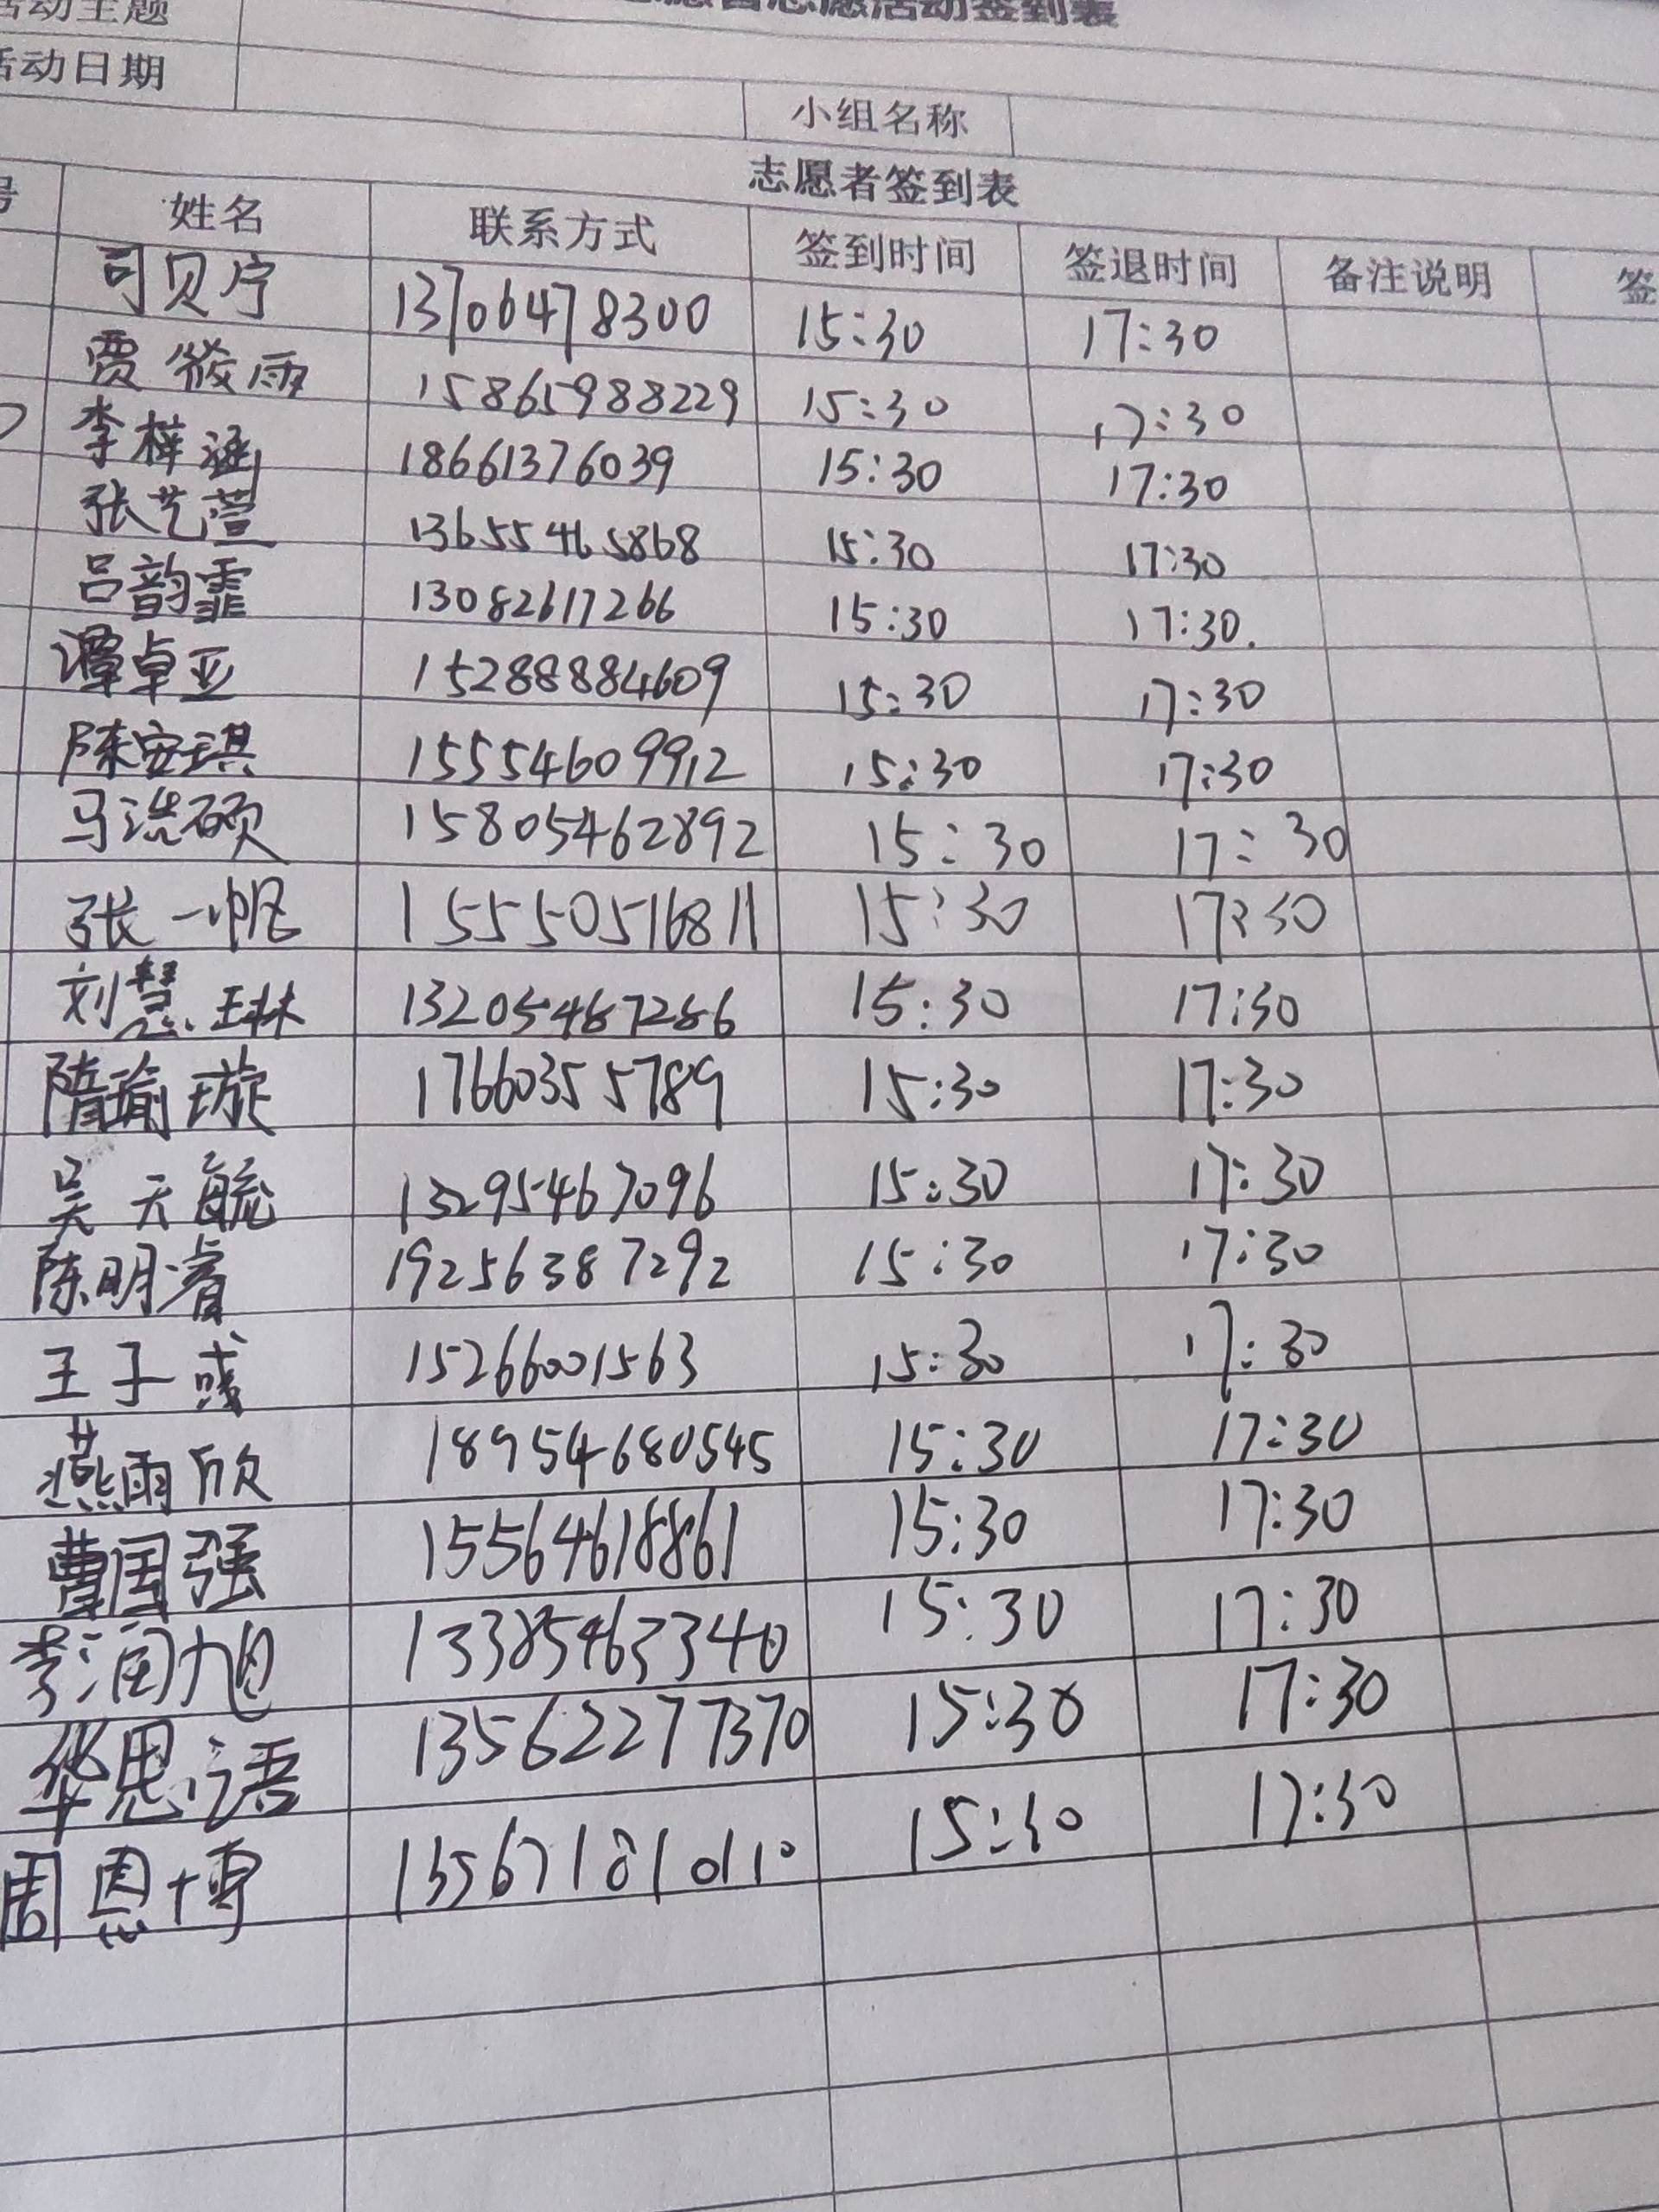 活动主题
志愿活动签到表
活动日期
小组名称
志愿者签到表
号 姓名 联系方式 签到时间 签退时间 备注说明 签
司贝宁 13706478300 15:30 17:30
贾筱雨 15865988229 15:30 17:30
李梓涵 18661376039 15:30 17:30
张艺萱 13655465868 15:30 17:30
吕韵霏 13082617266 15:30 17:30.
谭卓亚 15288884609 15:30 17:30
陈安琪 15554609912 15:30 17:30
马浩硕 15805462892 15:30 17:30
张一帆 15550516811 15:30 17:30
刘慧琳 13205467286 15:30 17:30
隋瑜璇 17660355789 15:30 17:30
吴天毓 13295467096 15:30 17:30
陈明睿 19256387292 15:30 17:30
王子彧 15266001563 15:30 17:30
燕雨欣 18954680545 15:30 17:30
曹国强 15564618861 15:30 17:30
李润旭 13385463340 15:30 17:30
华思语 13562277370 15:30 17:30
周恩博 15:30 17:30